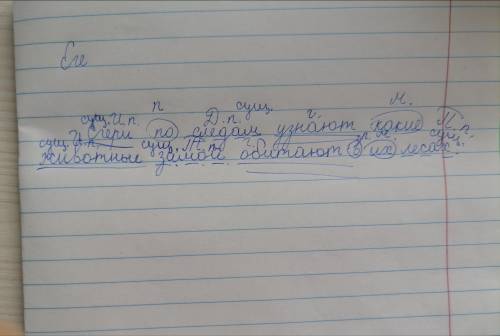 Еге
сущ. И.п. п Д.п сущ. г. М.
Егери по следам узнают какие
сущ. И.п. сущ. Т.п. г. п М. сущ. П.п.
животные замой обитают в их лесах.